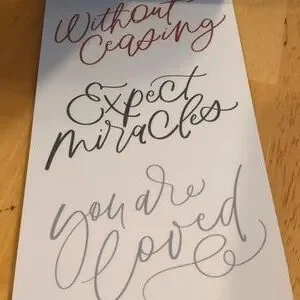 Without
Ceasing
Expect
miracles
you are
loved